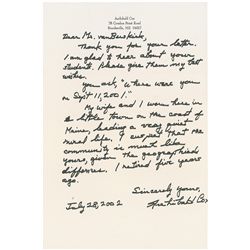 Archibald Cox
Dear Mr. vanBuskirk,
Thank you for your letter.
I am glad to hear about your
students. Please give them my best
wishes.
You ask, "Where were you
on Sept 11, 2001."
My wife and I were here in
a little town on the coast of
Maine, leading a very quiet
rural life. I suspect that the
community is much like
yours, given the geographical
differences. I retired five years
ago.
Sincerely yours,
July 28, 2002
Archibald Cox